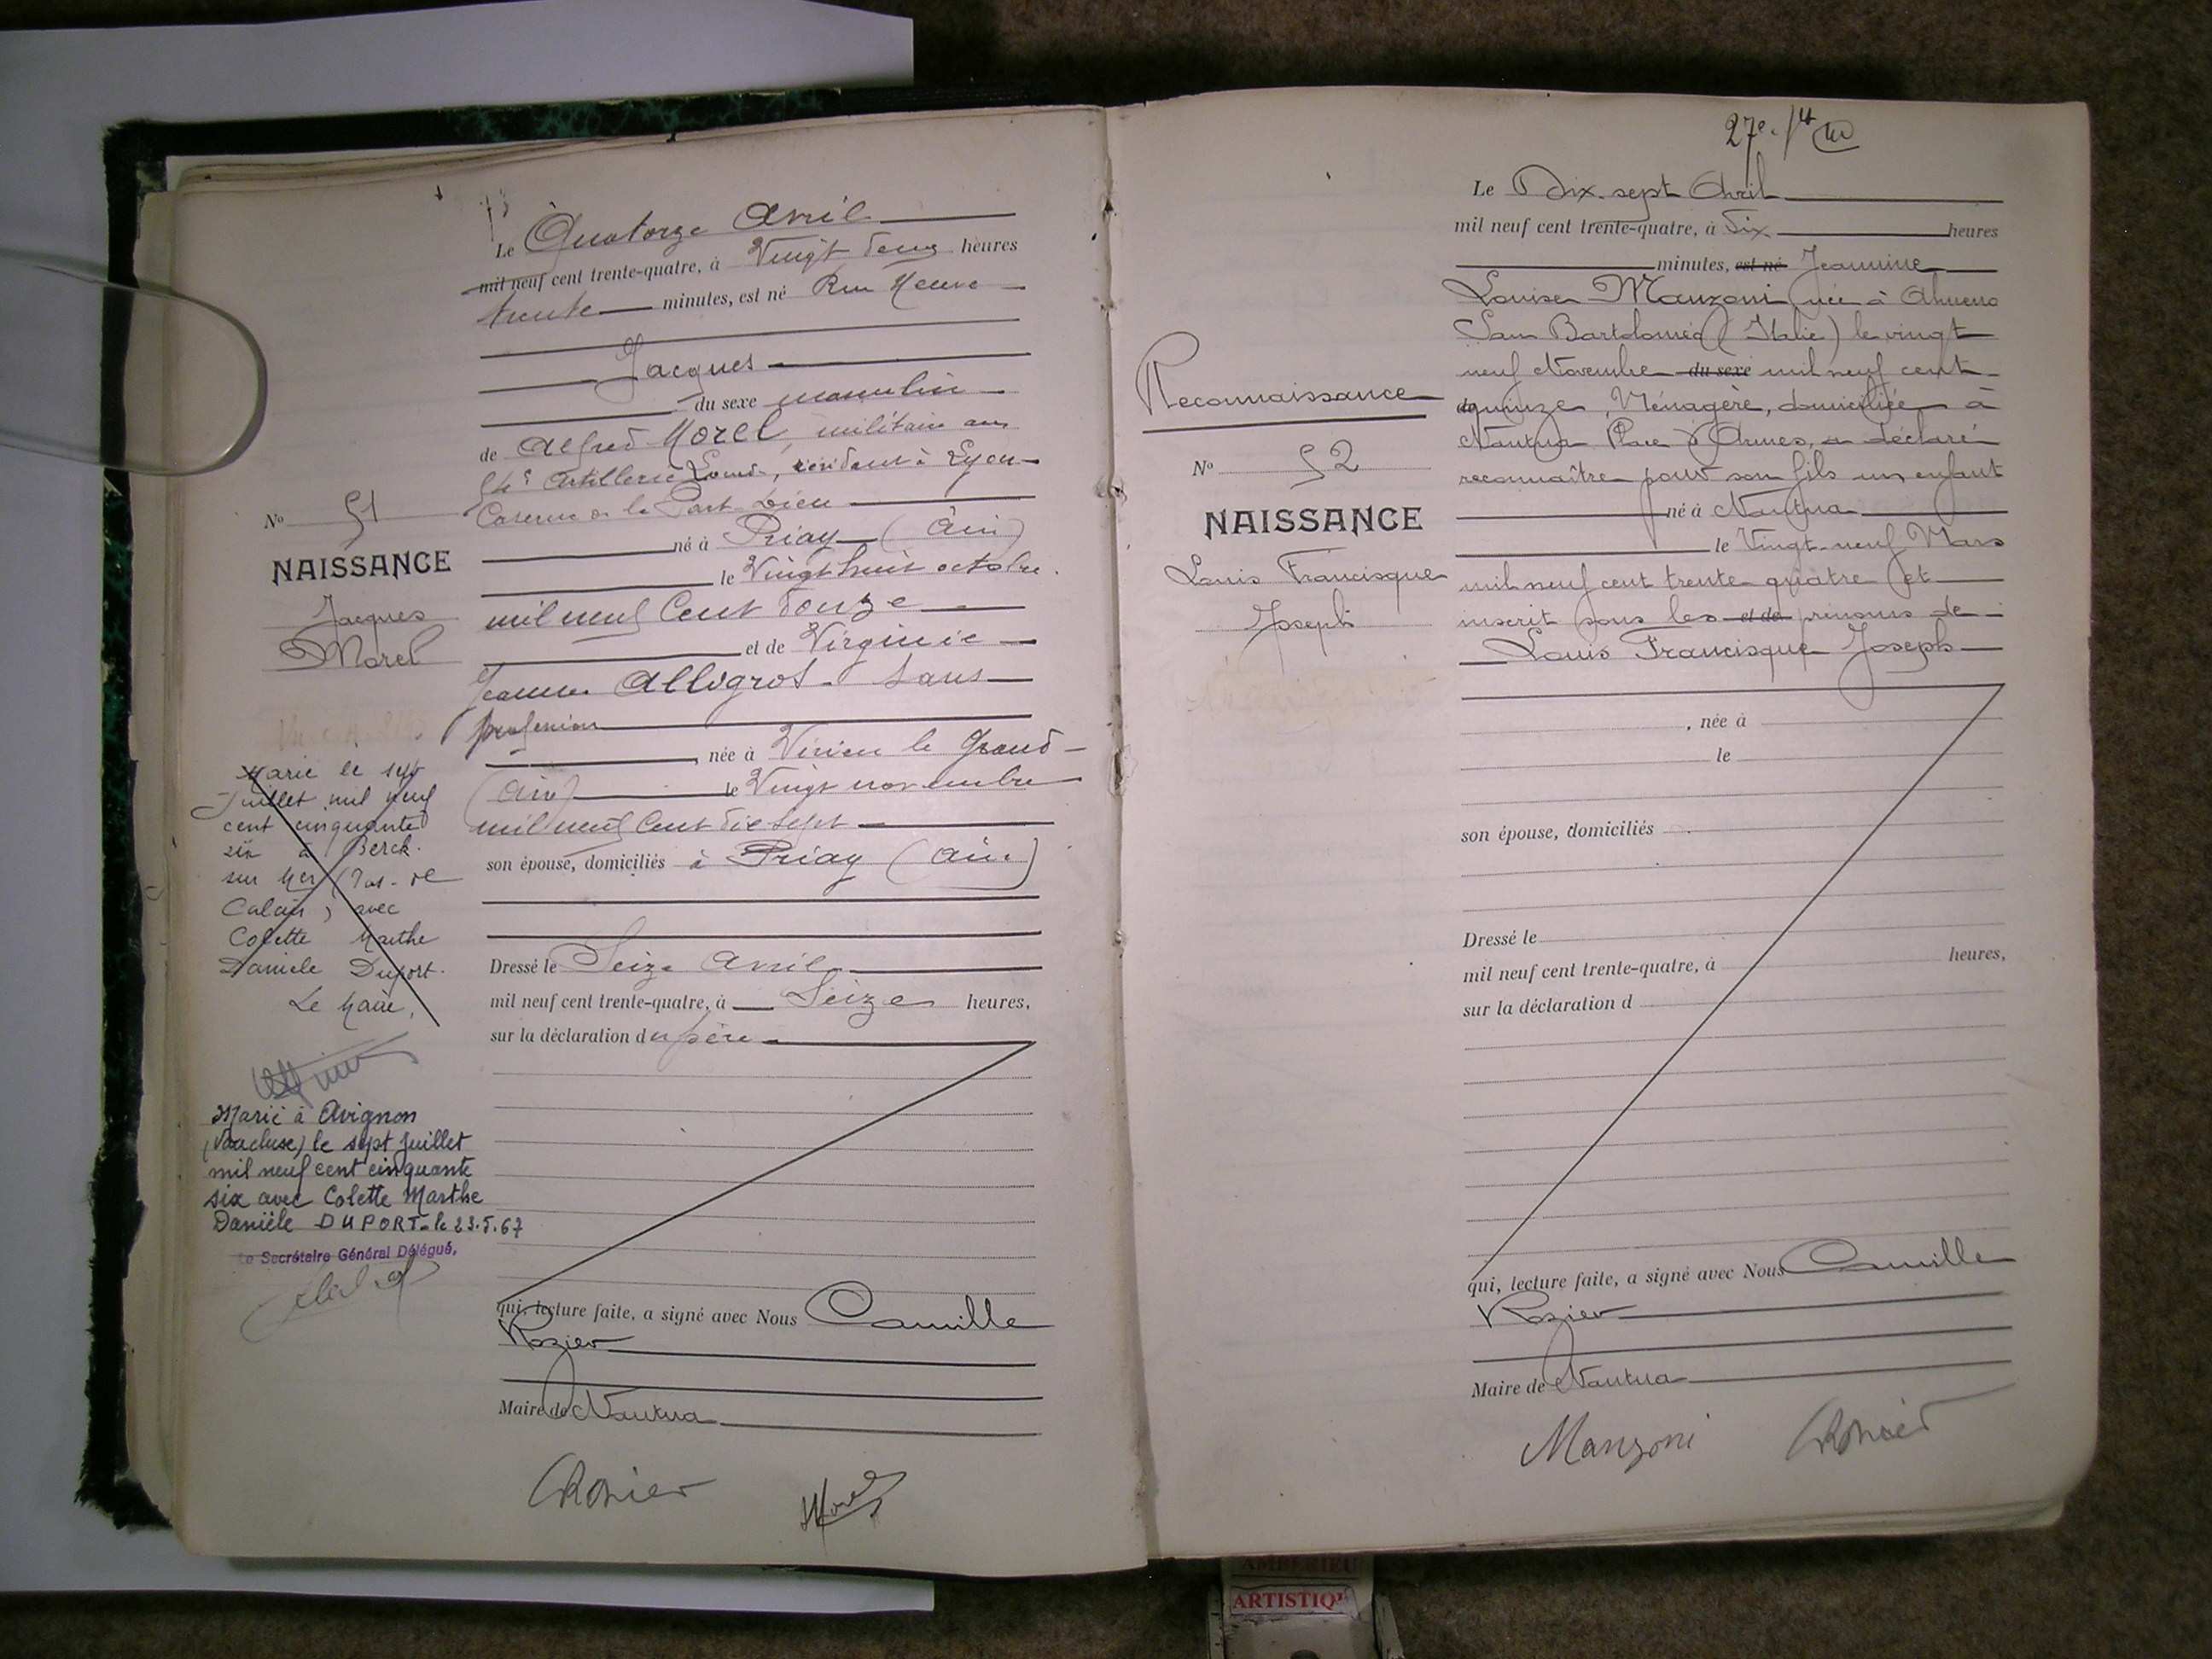 Le Quatorze Avril
mil neuf cent trente-quatre, à Vingt deux heures
trente minutes, est né Rue Neuve
Jacques
du sexe masculin
de Alfred Morel, militaire au
54e Artillerie Lourde, résidant à Lyon
Caserne de la Part Dieu
né à Priay (Ain)
le Vingt huit octobre
mil neuf Cent douze
et de Virginie
Jeanne Allogrot sans
profession
, née à Virieu le Grand
(Ain) le Vingt novembre
mil neuf Cent dix sept
son épouse, domiciliés à Priay (Ain)
Dressé le Seize Avril
mil neuf cent trente-quatre, à Seize heures,
sur la déclaration du père
qui, lecture faite, a signé avec Nous Camille
Rozier
Maire de Nantua
Rozier Morel
No 51
NAISSANCE
Jacques
Morel
Marié le sept
Juillet mil neuf
cent cinquante
six à Berck
sur Mer (Pas-de
Calais) avec
Colette Marthe
Daniele Duport.
Le Maire,
Marié à Avignon
(Vaucluse) le sept juillet
mil neuf cent cinquante
six avec Colette Marthe
Danièle DUPORT. le 23.5.67
Le Secrétaire Général Délégué,
27e
Le Dix-sept Avril
mil neuf cent trente-quatre, à Dix heures
minutes, est né Jeannine
Louise Manzoni née à Almeno
San Bartolomeo (Italie) le vingt
neuf Novembre du sexe mil neuf cent
de quinze, Ménagère, domiciliée à
Nantua Place d'Armes, a déclaré
reconnaître pour son fils un enfant
né à Nantua
le Vingt-neuf Mars
mil neuf cent trente quatre et
inscrit sous les et de prénoms de
Louis Francisque Joseph
, née à
le
son épouse, domiciliés
Dressé le
mil neuf cent trente-quatre, à heures,
sur la déclaration d
qui, lecture faite, a signé avec Nous Camille
Rozier
Maire de Nantua
Manzoni Rozier
Reconnaissance
No 52
NAISSANCE
Louis Francisque
Joseph
ARTISTIQU